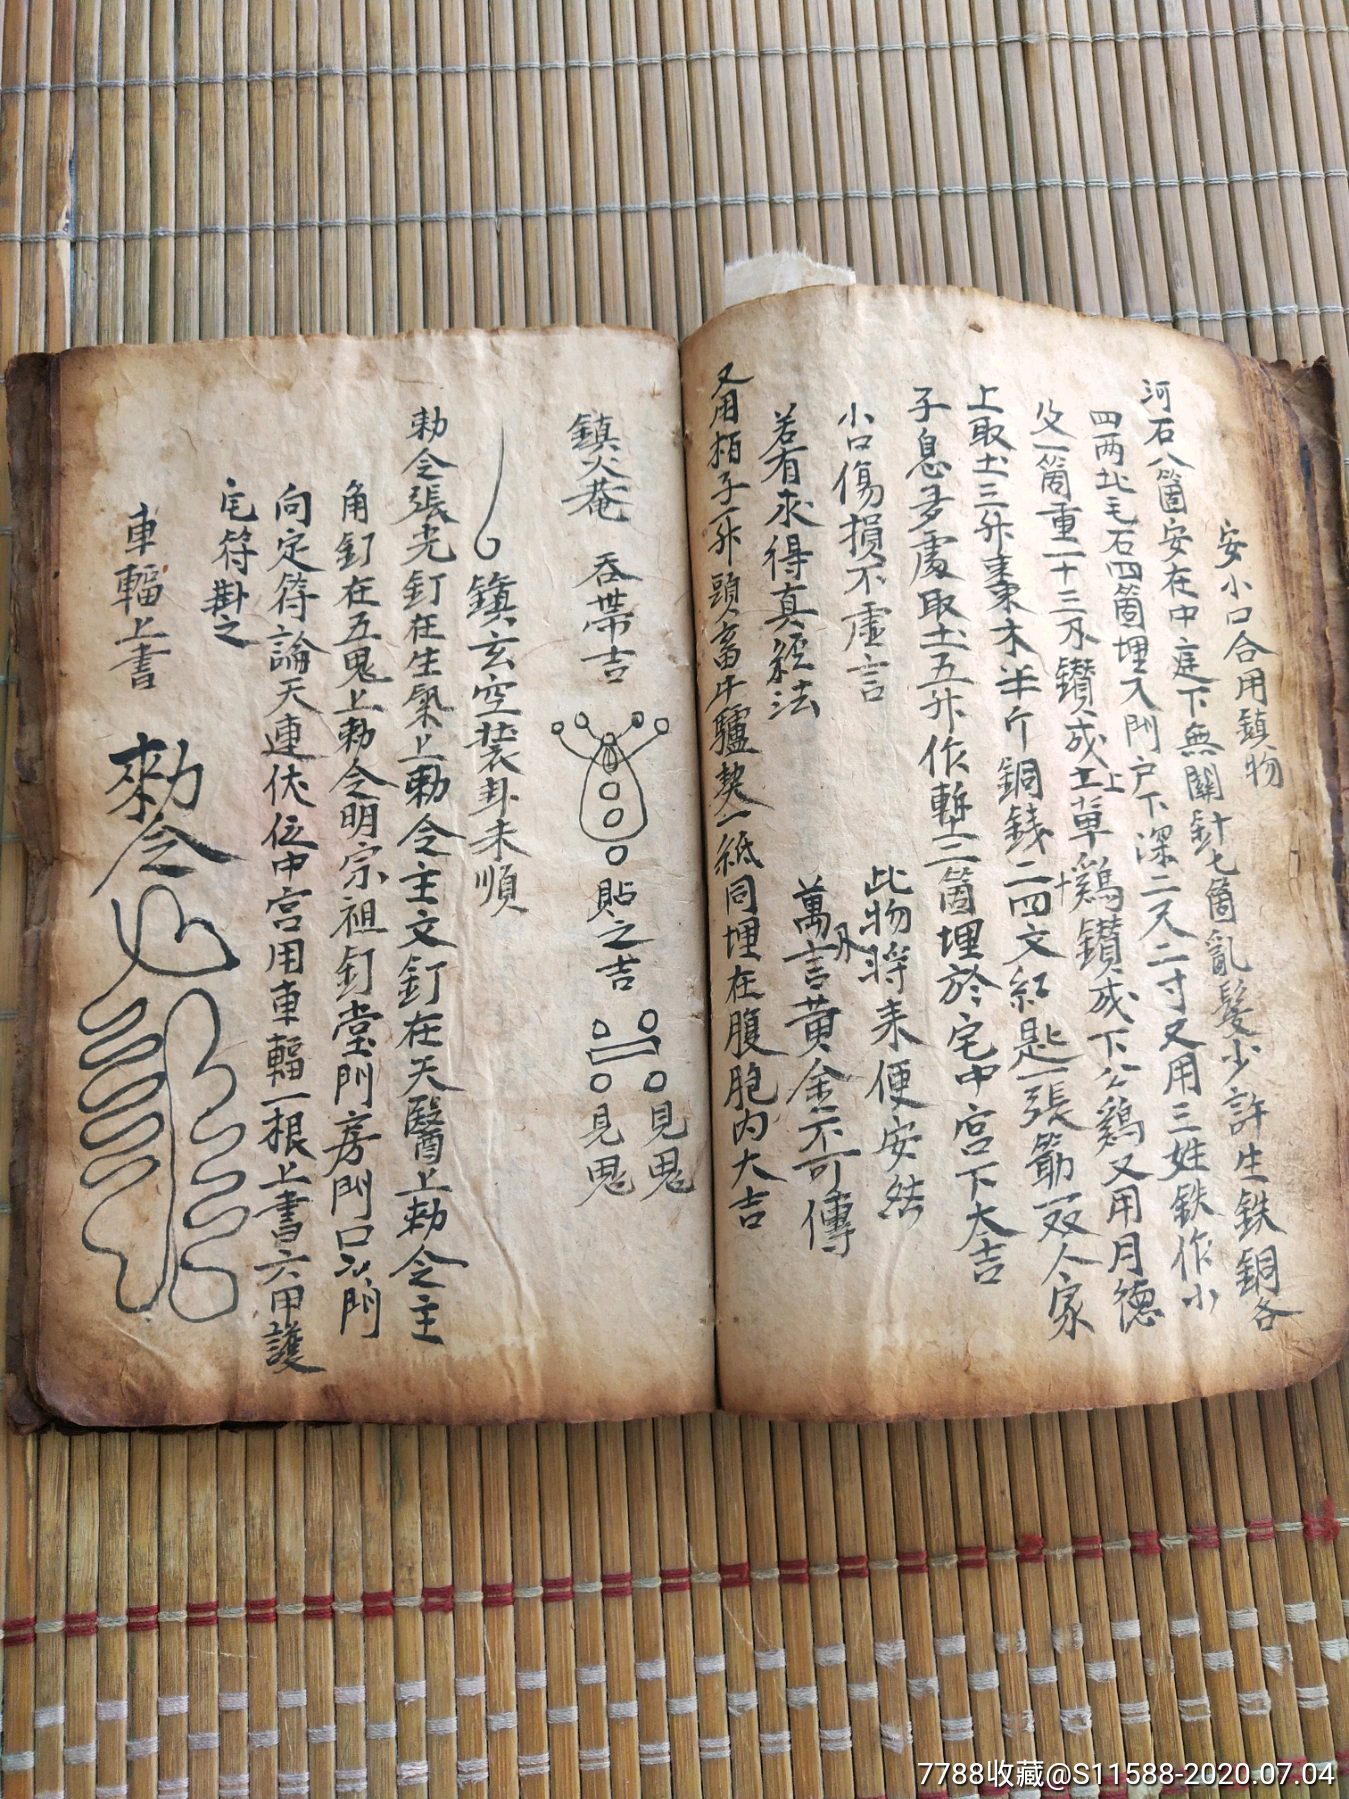 安小口合用鎮物
河石八箇安在中庭下無關針七箇亂髮少許生鉄銅各
四两北毛石四箇埋入門户下深二尺二寸又用三姓鉄作小
一箇重一十三斤鑽成上草鷄鑽成下公鷄又用月德
上取土三升棗木半斤銅錢二四文紅匙一張筯一双人家
子息多處取土五升作塹二箇埋於宅中宮下大吉
小口傷損不虛言
此物將来便安然
若有求得真經法
萬言黄金不可傳
又用栢子一升頭畜牛驢契一紙同埋在腹胞内大吉
鎮火菴 吞帶吉 貼之吉 見鬼 見鬼
鎮玄空裝卦未順
勅令張光釘在生氣上勅令主文釘在天醫上勅令主
角釘在五鬼上勅令明宗祖釘堂門房門口六門
向定符論天連伏位中宮用車輻一根上書六甲護
宅符掛之
車輻上書 勅令
7788收藏@S11588-2020.07.04